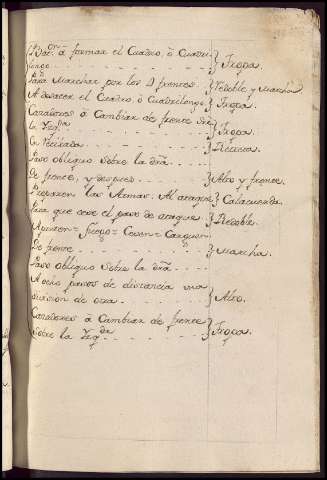 á formar el Quadro, ò Quadri-
longo - - - - - - } Tropa.
Para Marchar por los 4 frentes } Redoble, y Marcha
A desacer el Quadro ò Quadrilongo } Tropa.
Conversion à Cambiar de frente Sre
la Yzqda - - - - - } Tropa.
En Retirada - - - - - } Retreta.
Paso obliquo Sobre la dra - - - -
De frente, y despues - - - - } Alto y frente.
Preparen las Armas. Al ataque } Calacuerda.
Para que cese el paso de ataque } Redoble.
Apunten = fuego = Cesen = Carguen
De frente - - - - - - } Marcha.
Paso obliquo Sobre la dra - - - -
A ocho pasos de distancia una
division de otra - - - - } Alto.
à Cambiar de frente
Sobre la Yzqda - - - - } Tropa.